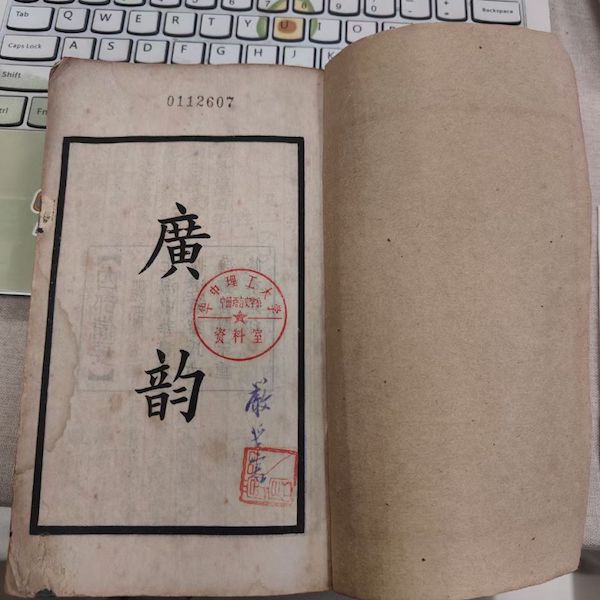 Tab Q W E R T Y U I O P Backspace
Caps Lock A S D F G H J K L
Shift
Fn
0112607
廣
韵
华中理工大学
资料室